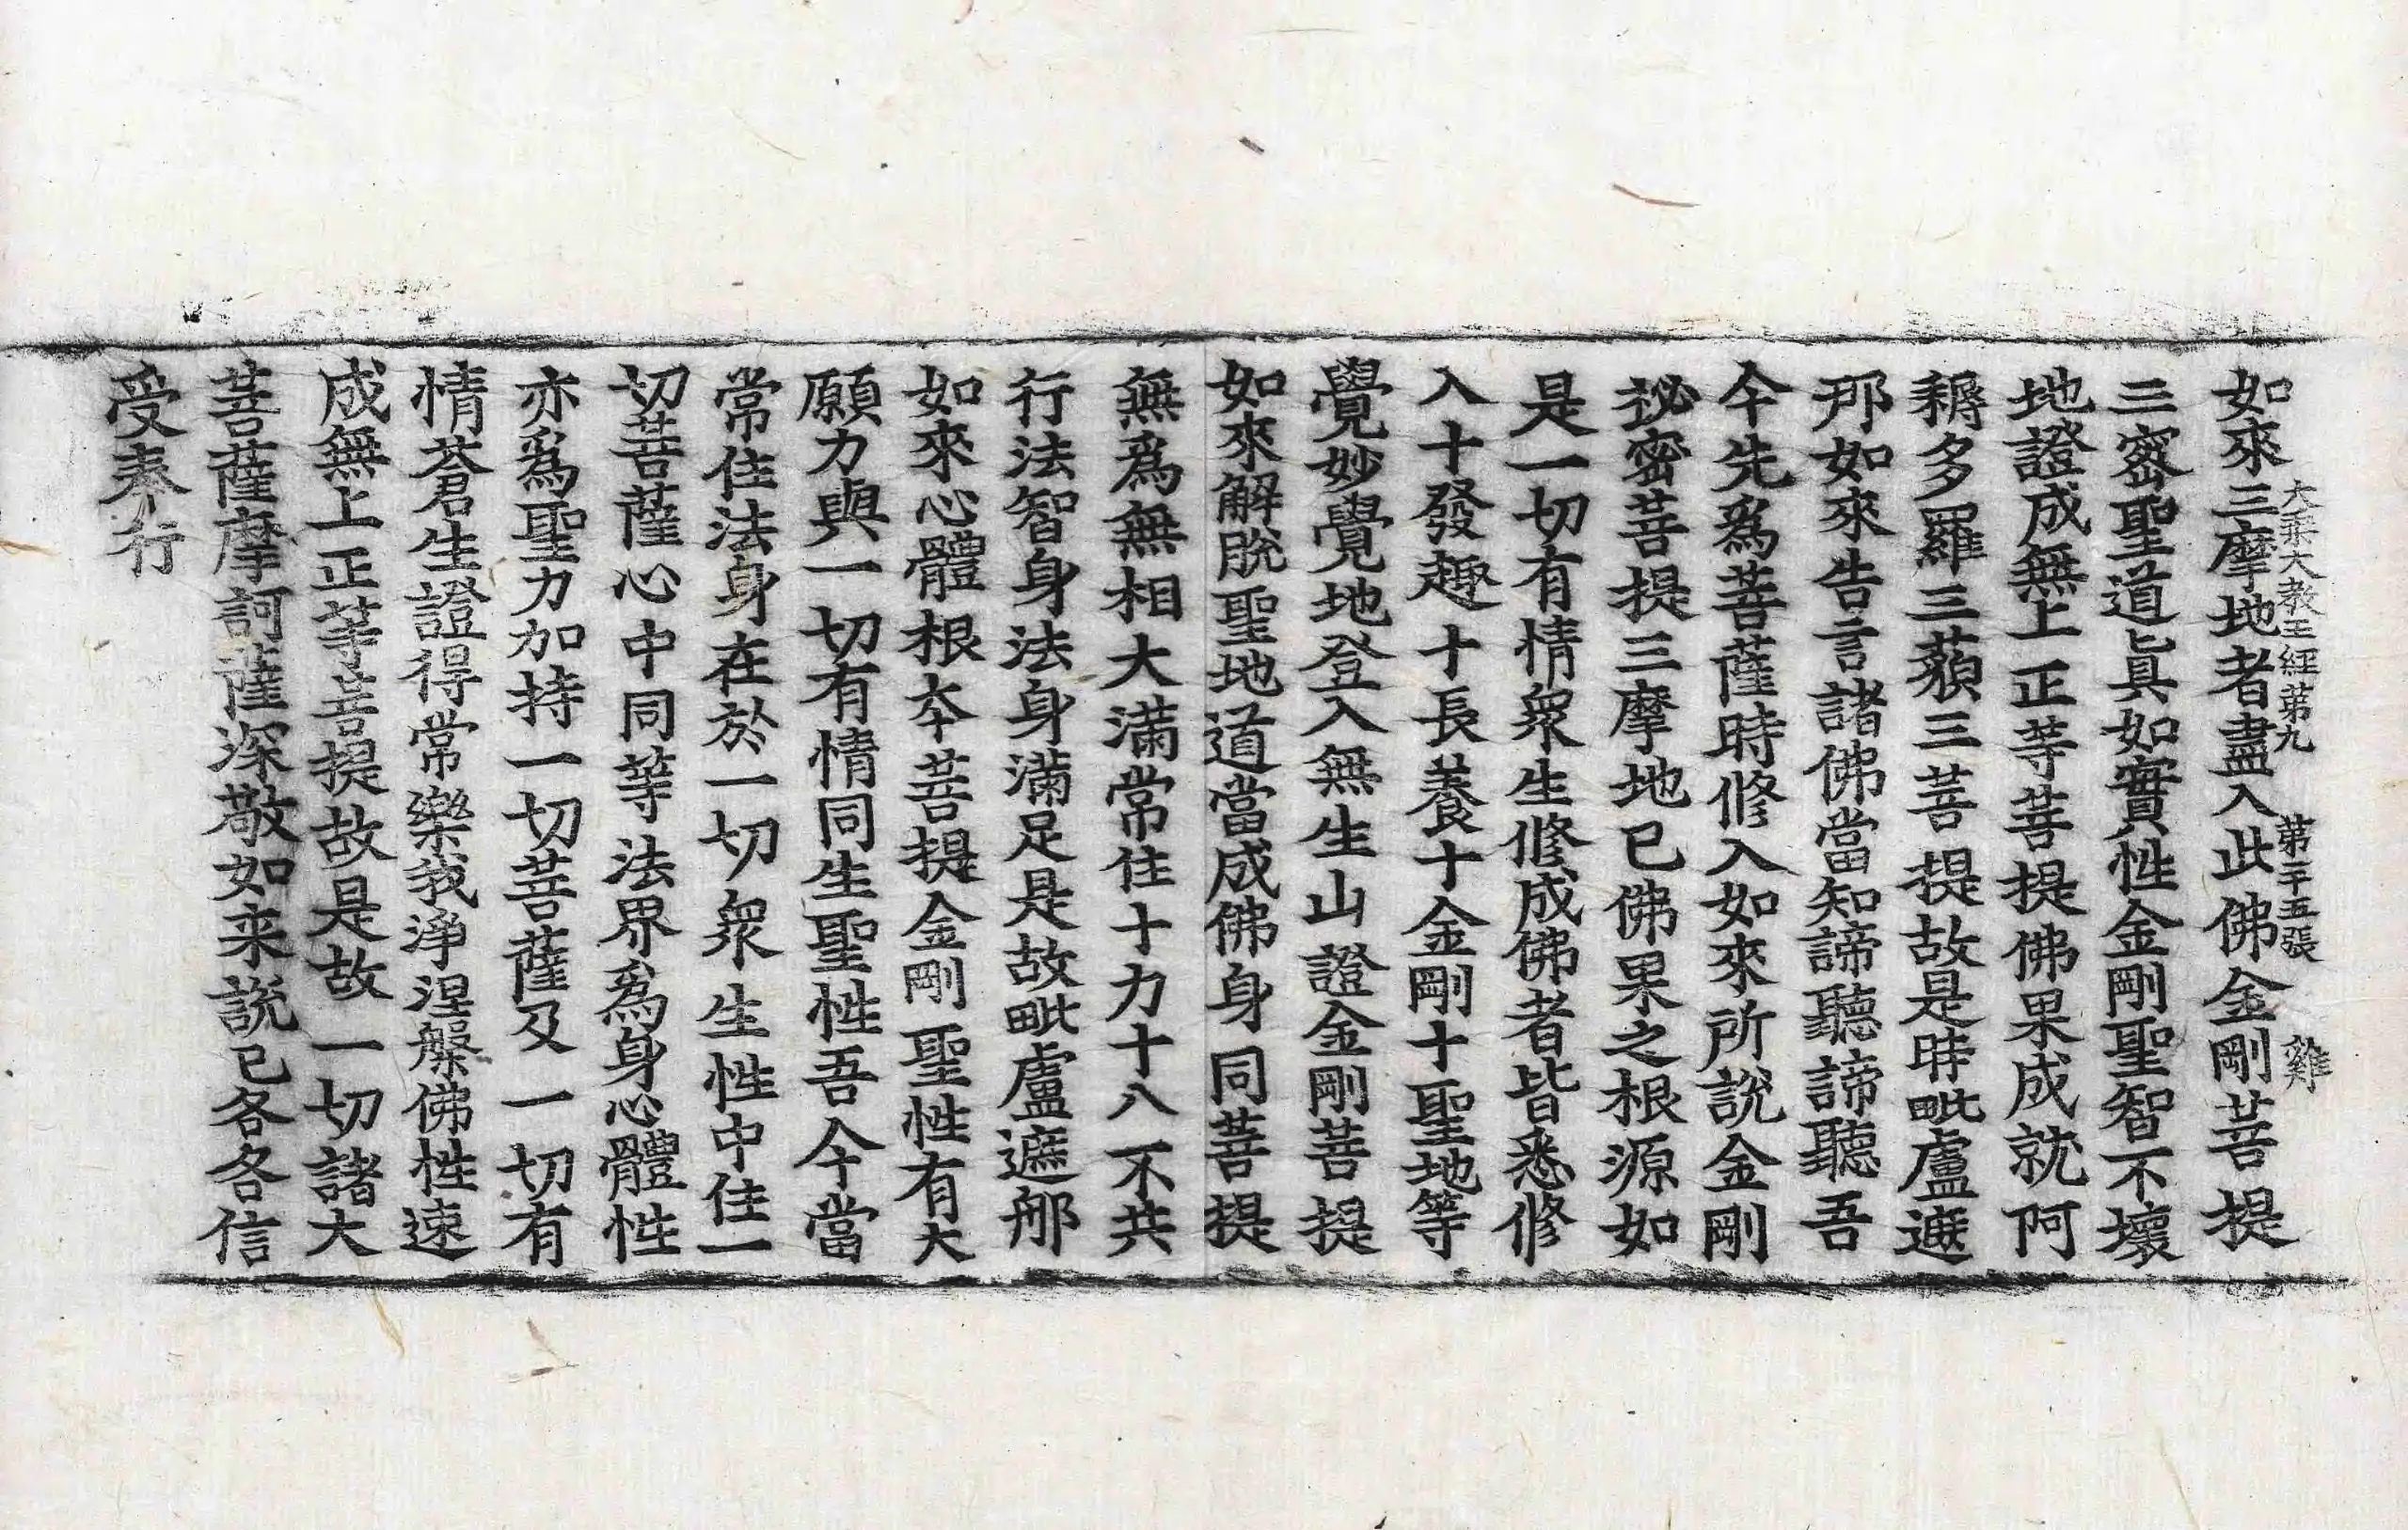 大乘大教王經第九　第二十五張　雞
如來三摩地者盡入此佛金剛菩提
三密聖道眞如實性金剛聖智不壞
地證成無上正等菩提佛果成就阿
耨多羅三藐三菩提故是時毗盧遮
那如來告言諸佛當知諦聽諦聽吾
今先爲菩薩時修入如來所說金剛
祕密菩提三摩地已佛果之根源如
是一切有情衆生修成佛者皆悉修
入十發趣十長養十金剛十聖地等
覺妙覺地登入無生山證金剛菩提
如來解脫聖地道當成佛身同菩提
無爲無相大滿常住十力十八不共
行法智身法身滿足是故毗盧遮那
如來心體根本菩提金剛聖性有大
願力與一切有情同生聖性吾今當
常住法身在於一切衆生性中住一
切菩薩心中同等法界爲身心體性
亦爲聖力加持一切菩薩及一切有
情蒼生證得常樂我淨涅槃佛性速
成無上正等菩提故是故一切諸大
菩薩摩訶薩深敬如來說已各各信
受奉行